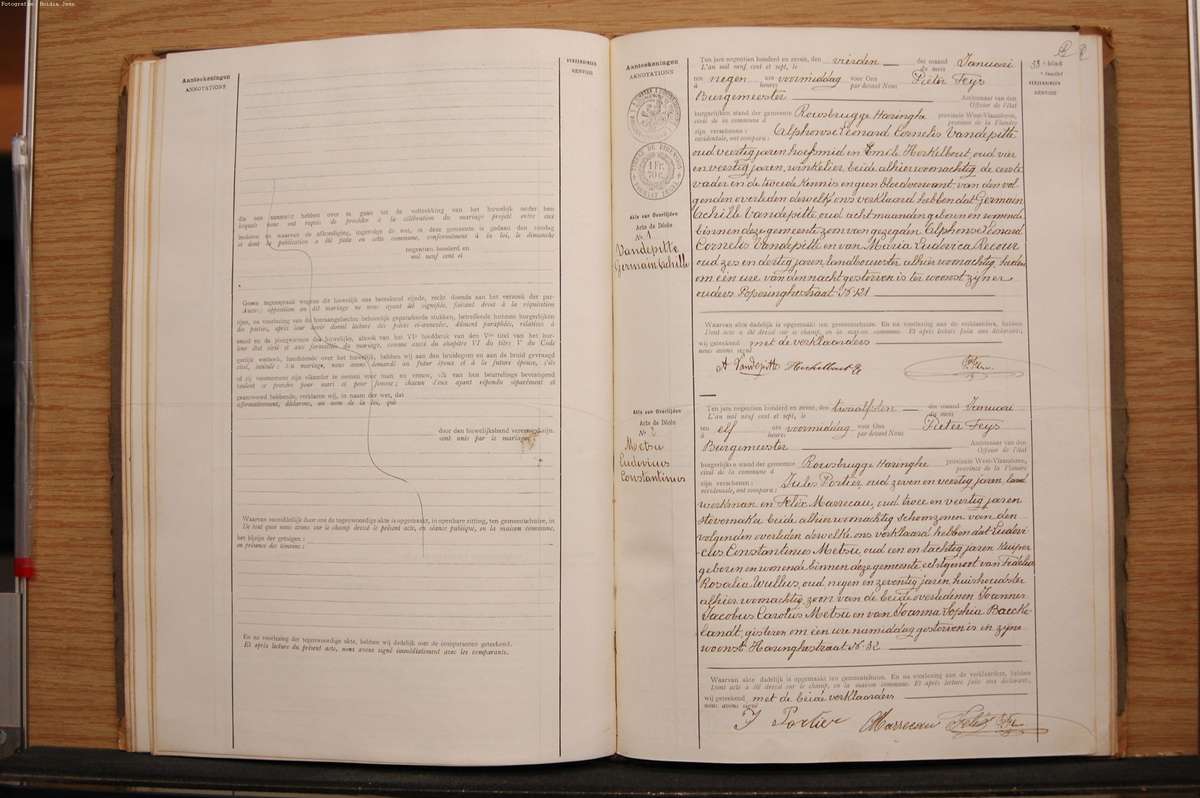 Fotografie: Boidin Jens
Aanteekeningen
ANNOTATIONS
VERZENDINGEN
RENVOIS
die ons aanzocht hebben over te gaan tot de voltrekking van het huwelijk onder hen
lesquels nous ont requis de procéder à la célébration du mariage projeté entre eux
besloten en waarvan de afkondiging, ingevolge de wet, in deze gemeente is gedaan den zondag
et dont la publication a été faite en cette commune, conformément à la loi, le dimanche
negentien honderd en
mil neuf cent et
Geene tegenspraak wegens dit huwelijk ons beteekend zijnde, recht doende aan het verzoek der par-
Aucune opposition au dit mariage ne nous ayant été signifiée, faisant droit à la réquisition
tijen, en voorlezing van de hiernaangehechte behoorlijk geparafeerde stukken, betreffende hunnen burgerlijken
des parties, après leur avoir donné lecture des pièces ci-annexées, dûment paraphées, relatives à
staat en de pleegvormen des huwelijks, alsook van het VIe hoofdstuk van den Ven titel van het bur-
leur état civil et aux formalités du mariage, comme aussi du chapitre VI du titre V du Code
gerlijk wetboek, handelende over het huwelijk, hebben wij aan den bruidegom en aan de bruid gevraagd
civil, intitulé : Du mariage, nous avons demandé au futur époux et à la future épouse, s'ils
of zij voornemens zijn elkander te nemen voor man en vrouw, elk van hen beurtelings bevestigend
veulent se prendre pour mari et pour femme ; chacun d'eux ayant répondu séparément et
geantwoord hebbende, verklaren wij, in naam der wet, dat
affirmativement, déclarons, au nom de la loi, que
door den huwelijksband vereenigd zijn.
sont unis par le mariage.
Waarvan onmiddelijk door ons de tegenwoordige akte is opgemaakt, in openbare zitting, ten gemeentehuize, in
De tout quoi nous avons sur le champ dressé le présent acte, en séance publique, en la maison commune,
het bijzijn der getuigen :
en présence des témoins :
En na voorlezing der tegenwoordige akte, hebben wij dadelijk met de comparanten geteekend.
Et après lecture du présent acte, nous avons signé immédiatement avec les comparants.
Aanteekeningen
ANNOTATIONS
Ten jare negentien honderd en zeven, den vierden der maand Januari
L'an mil neuf cent et sept, le du mois
ten negen ure voormiddag voor Ons Pieter Feys
à heures par devant Nous
Burgemeester Ambtenaar van den
Officier de l'état
burgerlijken stand der gemeente Rousbrugge Haringhe provincie West-Vlaanderen,
civil de la commune d province de la Flandre
zijn verschenen : Alphonse Leonard Cornelis Vandepitte
occidentale, ont comparu :
oud veertig jaren hoefsmid en Emile Herkelbout, oud vier
en veertig jaren, winkelier beide alhier woonachtig de eerste
vader en de tweede kennis en geen bloedverwant van den vol-
genden overleden derwelke ons verklaard hebben dat Germain
Achille Vandepitte, oud acht maanden geboren en wonende
binnen deze gemeente zoon van gezegden Alphonse Leonard
Cornelis Vandepitte en van Maria Ludovica Recour
oud zes en dertig jaren, landbouwster alhier woonachtig, heden
om een ure van den nacht gestorven is ter woonst zijner
ouders Poperinghestraat No 121
Akte van Overlijden
Acte de Décès
No 1
Vandepitte
Germain Achille
Waarvan akte dadelijk is opgemaakt ten gemeentehuize. En na voorlezing aan de verklaarders, hebben
Dont acte a été dressé sur le champ, en la maison commune. Et après lecture faite aux déclarans,
wij geteekend met de verklaarders
nous avons signé
A Vandepitte Herkelbout E P. Feys
Akte van Overlijden
Acte de Décès
No 2
Metsu
Ludovicus
Constantinus
Ten jare negentien honderd en zeven, den twaalfsten der maand Januari
L'an mil neuf cent et sept, le du mois
ten elf ure voormiddag voor Ons Pieter Feys
à heures par devant Nous
Burgemeester Ambtenaar van den
Officier de l'état
burgerlijken stand der gemeente Rousbrugge Haringhe provincie West-Vlaanderen,
civil de la commune d province de la Flandre
zijn verschenen : Jules Portier oud zeven en veertig jaren, land
occidentale, ont comparu :
werkman en Felix Masseeau, oud twee en veertig jaren
stovemaker beide alhier woonachtig schoonzonen van den
volgenden overleden derwelke ons verklaard hebben dat Ludovi-
cus Constantinus Metsu oud een en tachtig jaren kuiper
geboren en wonende binnen deze gemeente echtgenoot van Fidelia
Rosalia Wullus, oud negen en zeventig jaren huishoudster
alhier woonachtig, zoon van de beide overledenen Joannes
Jacobus Carolus Metsu en van Joanna Sophia Baecke-
landt, gisteren om een ure namiddag gestorven is in zijne
woonst Haringhestraat No 32
Waarvan akte dadelijk is opgemaakt ten gemeentehuize. En na voorlezing aan de verklaarders, hebben
Dont acte a été dressé sur le champ, en la maison commune. Et après lecture faite aux déclarans,
wij geteekend met de beide verklaarders
nous avons signé
J Portier Masseeau Felix P. Feys
33e blad
e feuillet
VERZENDINGEN
RENVOIS